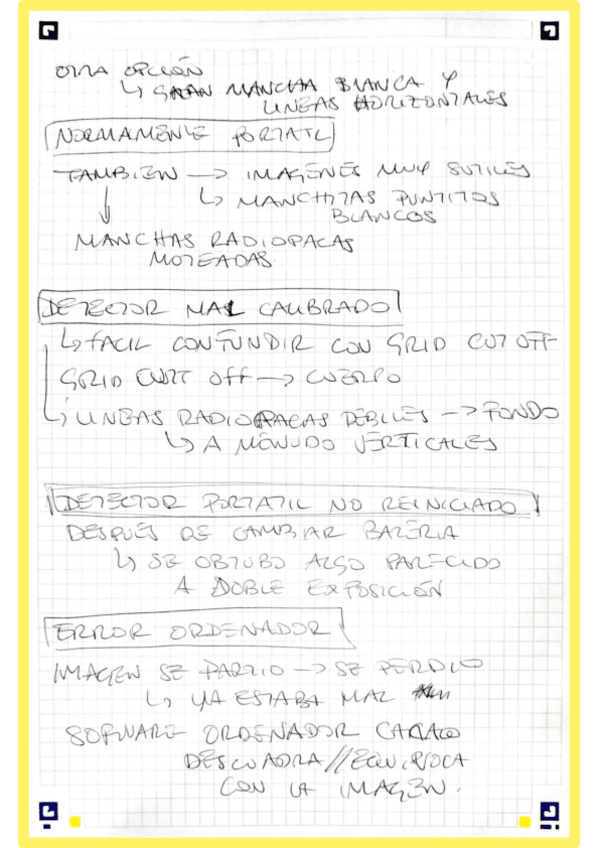 OTRA OPCIÓN
↳ GRAN MANCHA BLANCA Y
LINEAS HORIZONTALES
NORMAMENTE PORTATIL
TAMBIEN → IMAGENES MUY SUTILES
↳ MANCHITAS PUNTITOS
BLANCOS
↓
MANCHAS RADIOPACAS
MOTEADAS
DETECTOR MAL CALIBRADO
↳ FACIL CONFUNDIR CON GRID CUT OFF
GRID CURT OFF → CUERPO
↳ LINEAS RADIOPACAS DEBILES → FONDO
↳ A MENUDO VERTICALES
DETECTOR PORTATIL NO REINICIADO
DESPUÉS DE CAMBIAR BATERIA
↳ SE OBTUBO ALGO PARECIDO
A DOBLE EXPOSICIÓN
ERROR ORDENADOR
IMAGEN SE PARTIO → SE PERDIO
↳ YA ESTABA MAL
SOFWARE ORDENADOR
DESCUADRA//EQUIVOCA
CON LA IMAGEN.